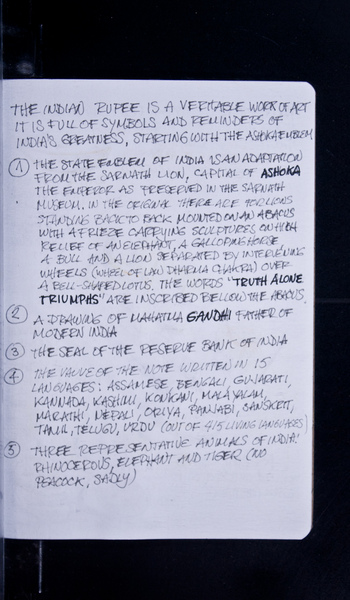 THE INDIAN RUPEE IS A VERITABLE WORK OF ART
IT IS FULL OF SYMBOLS AND REMINDERS OF
INDIA'S GREATNESS, STARTING WITH THE ASHOKA EMBLEM
① THE STATE EMBLEM OF INDIA IS AN ADAPTATION
FROM THE SARNATH LION, CAPITAL OF ASHOKA
THE EMPEROR AS PRESERVED IN THE SARNATH
MUSEUM. IN THE ORIGINAL THERE ARE 4 LIONS
STANDING BACK TO BACK MOUNTED ON AN ABACUS
WITH A FRIEZE CARRYING SCULPTURES ON HIGH
RELIEF OF AN ELEPHANT, A GALLOPING HORSE
A BULL AND A LION SEPARATED BY INTERVENING
WHEELS (WHEEL OF LAW DHARMA CHAKRA) OVER
A BELL-SHAPED LOTUS. THE WORDS "TRUTH ALONE
TRIUMPHS" ARE INSCRIBED BELLOW THE ABACUS.
② A DRAWING OF MAHATMA GANDHI FATHER OF
MODERN INDIA
③ THE SEAL OF THE RESERVE BANK OF INDIA
④ THE VALUE OF THE NOTE WRITTEN IN 15
LANGUAGES: ASSAMESE, BENGALI, GUJARATI,
KANNADA, KASHMIRI, KONKANI, MALAYALAM,
MARATHI, NEPALI, ORIYA, PANJABI, SANSKRIT,
TAMIL, TELUGU, URDU (OUT OF 415 LIVING LANGUAGES)
⑤ THREE REPRESENTATIVE ANIMALS OF INDIA:
RHINOCEROUS, ELEPHANT AND TIGER (NO
PEACOCK, SADLY)